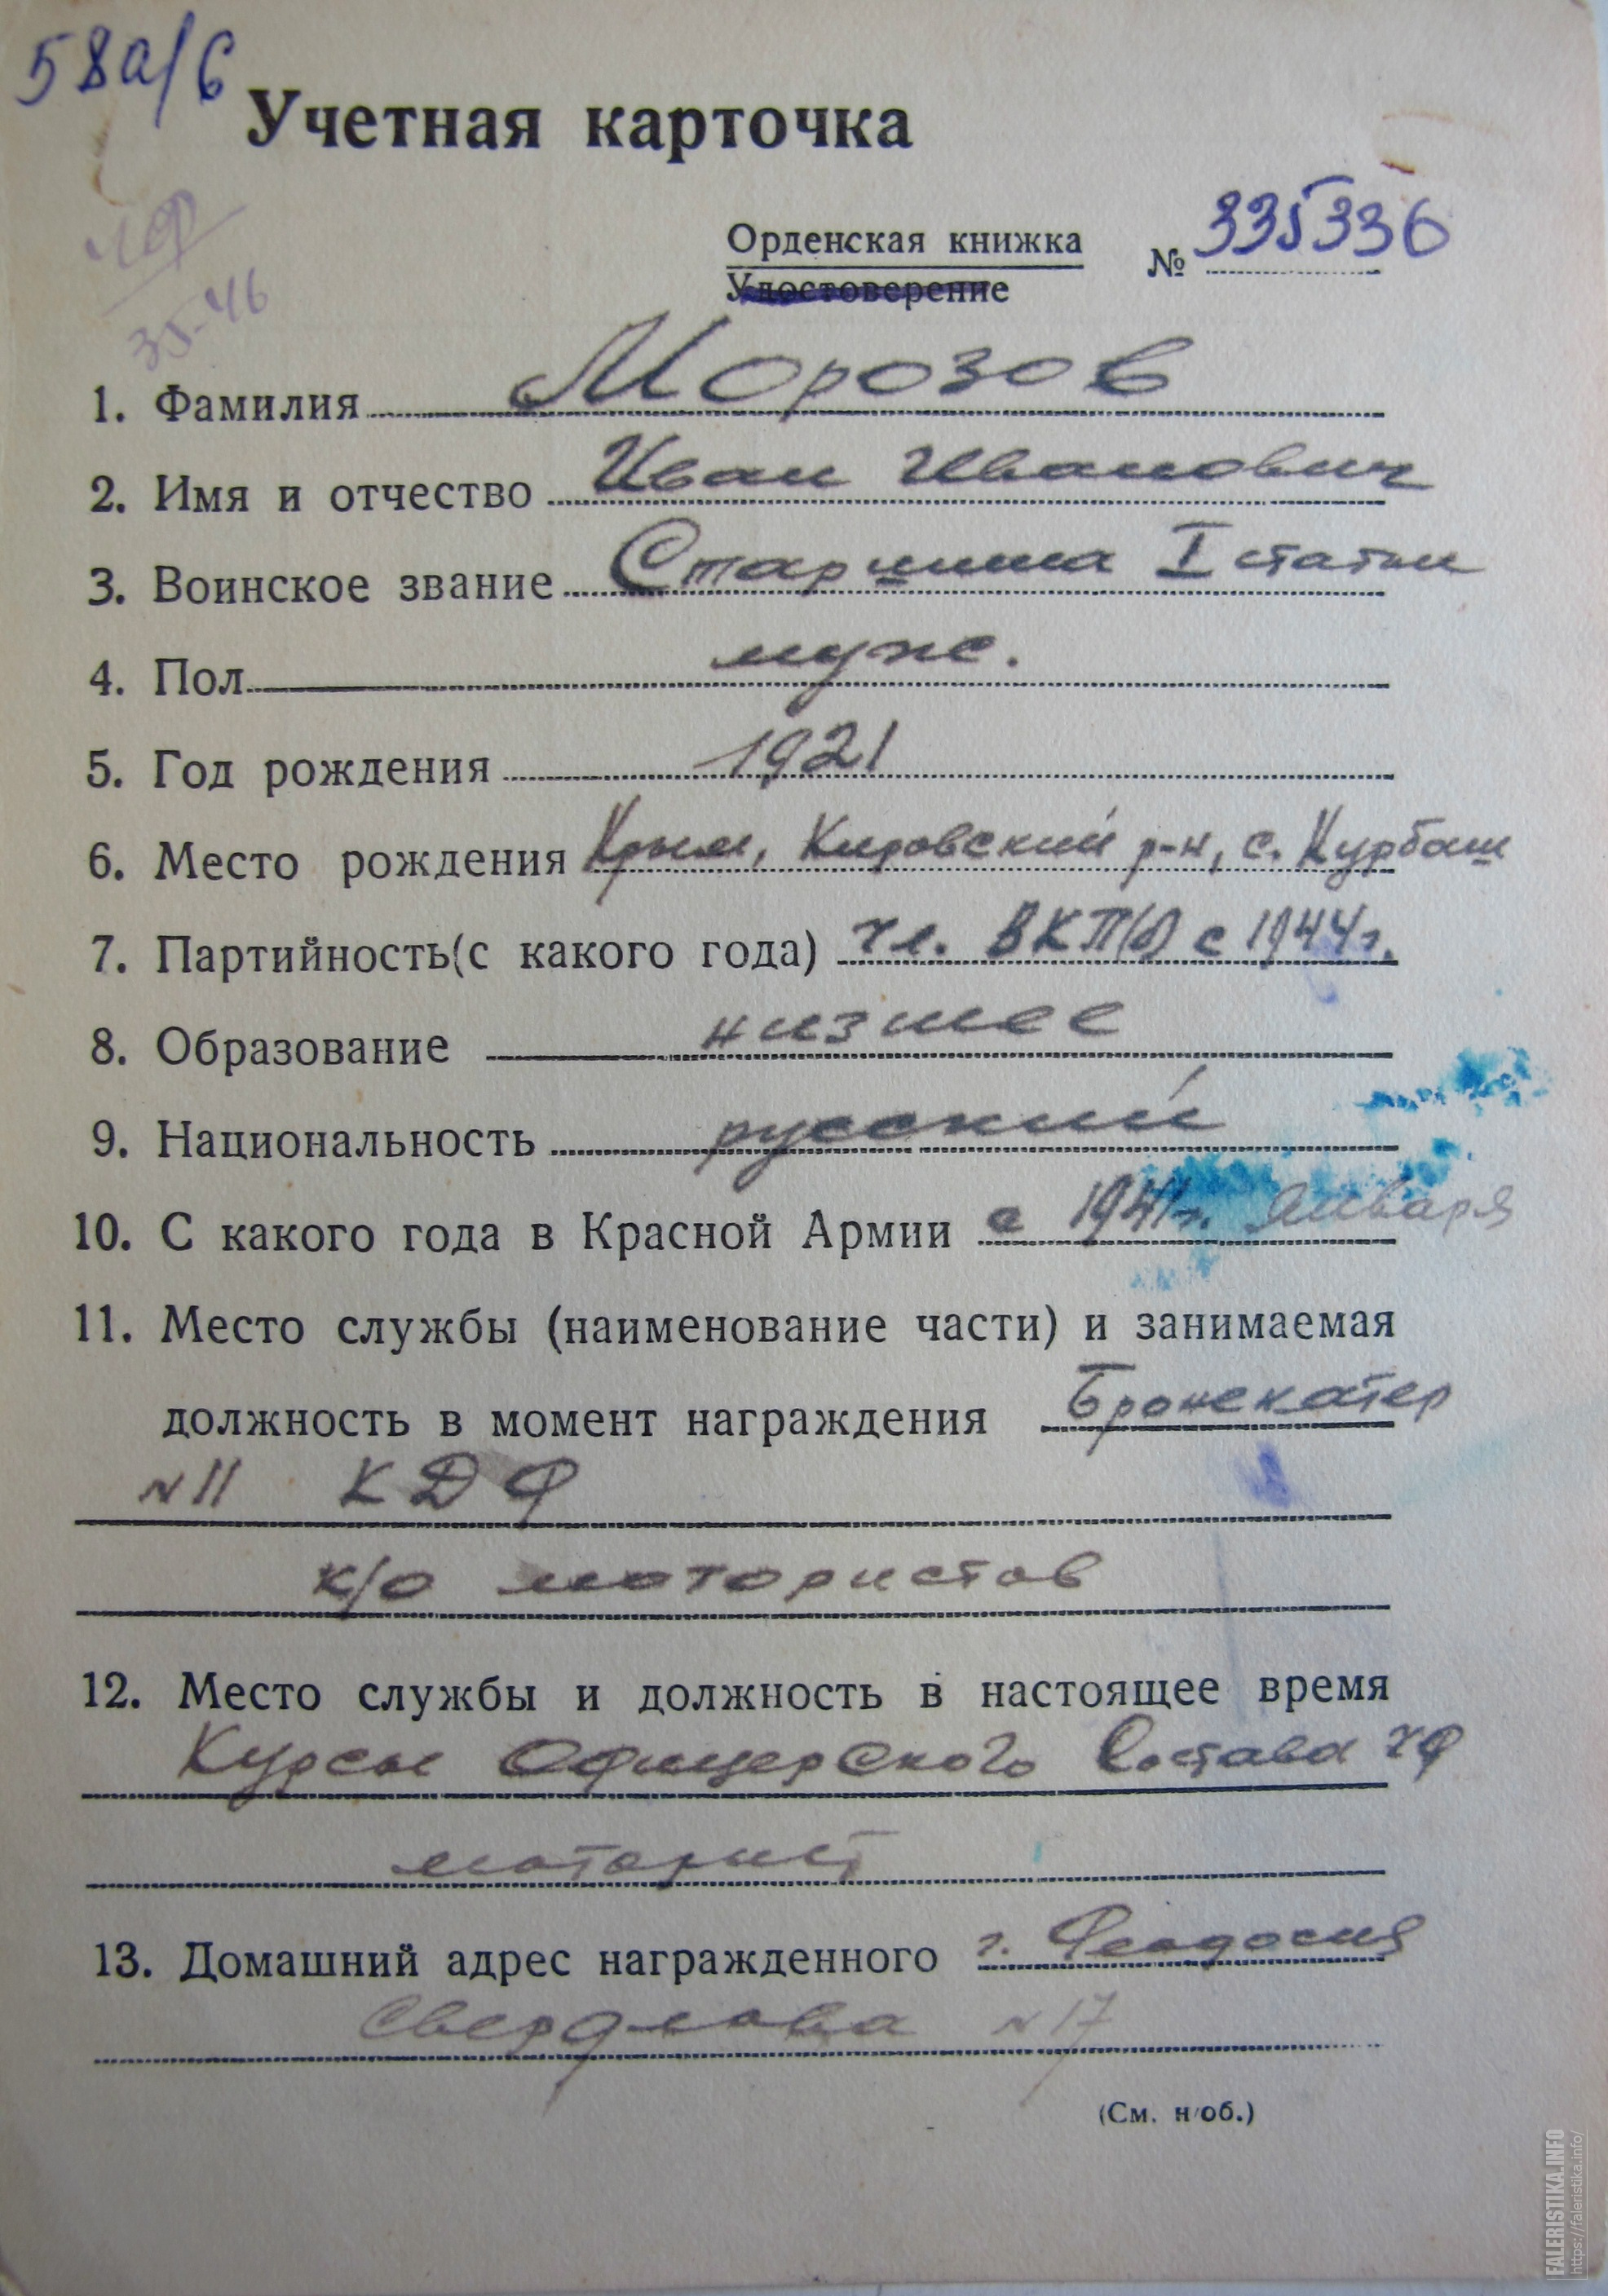 58а/6
Учетная карточка
ЧФ
35-46
Орденская книжка № 335336
Удостоверение
1. Фамилия Морозов
2. Имя и отчество Иван Иванович
3. Воинское звание Старшина I статьи
4. Пол муж.
5. Год рождения 1921
6. Место рождения Крым, Кировский р-н, с. Курбаш
7. Партийность(с какого года) чл. ВКП(б) с 1944г.
8. Образование низшее
9. Национальность русский
10. С какого года в Красной Армии с 1941г. января
11. Место службы (наименование части) и занимаемая
должность в момент награждения Бронекатер
N 11 КДФ
к/о мотористов
12. Место службы и должность в настоящее время
Курсы Офицерского Состава ЧФ
моторист
13. Домашний адрес награжденного г. Феодосия
Свердлова N 17
(См. н/об.)
FALERISTIKA.INFO
https://faleristika.info/